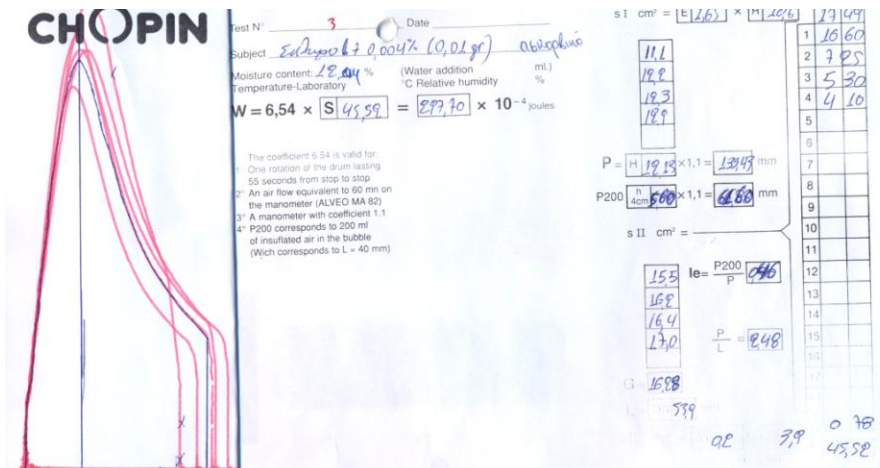 CHOPIN
Test N° 3 Date
Subject + 0,004% (0,01 gr)
Moisture content: %
(Water addition ml.)
Temperature-Laboratory °C Relative humidity %
W = 6,54 × S 45,52 = 297,70 × 10⁻⁴ joules
The coefficient 6.54 is valid for:
1° One rotation of the drum lasting
55 seconds from stop to stop
2° An air flow equivalent to 60 mn on
the manometer (ALVEO MA 82)
3° A manometer with coefficient 1.1
4° P200 corresponds to 200 ml
of insuflated air in the bubble
(Wich corresponds to L = 40 mm)
s I cm² = E 1,65 × H 10,6 17 49
11,1
12,2
12,3
12,9
P = H ×1,1 = mm
P200 h 4cm ×1,1 = mm
s II cm² =
15,5
16,2
16,4
17,0
Ie= P200 / P
P / L = 2,48
G 16,28
L 53,9
1 16 60
2
3 5 30
4 4 10
5
6
7
8
9
10
11
12
13
14
15
16
17
0,2 3,9 0 78
45,52